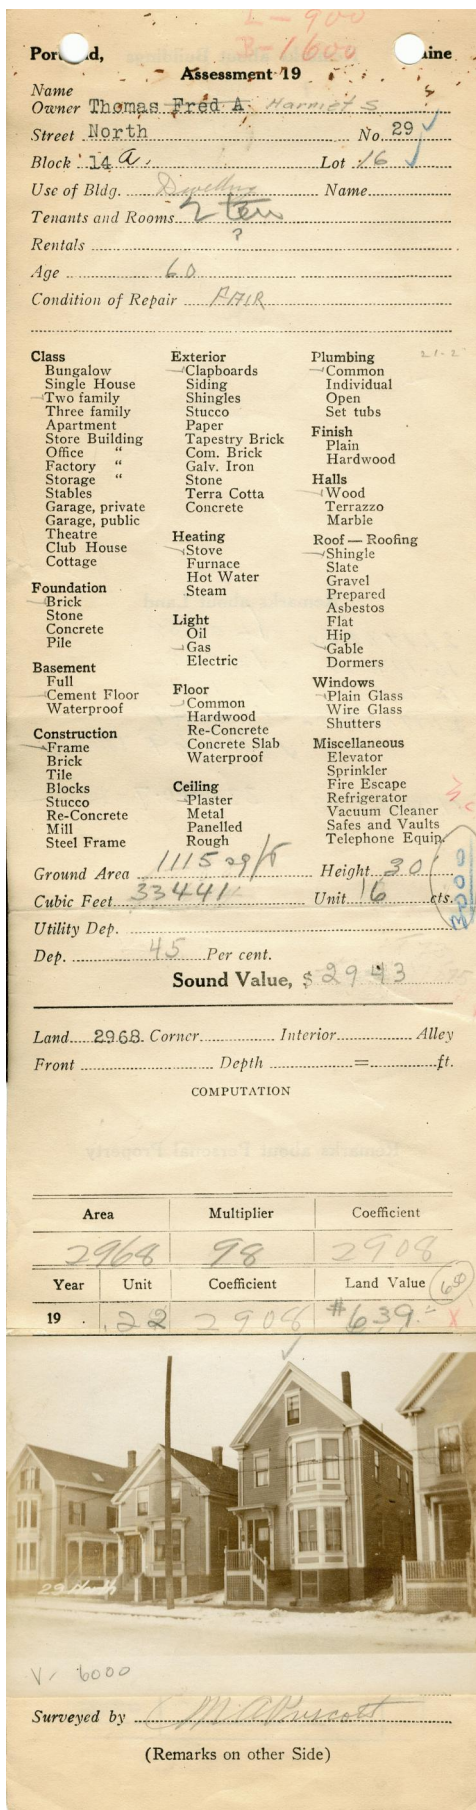 L - 900
B - 1600
Portland, Maine
Assessment 19
Name
Owner Thomas Fred A. Harriet S
Street North No. 29
Block 14 a. Lot 16
Use of Bldg. Dwelling Name
Tenants and Rooms 2 ten
Rentals ?
Age 60
Condition of Repair FAIR
21-2
Class
Bungalow
Single House
Two family
Three family
Apartment
Store Building
Office "
Factory "
Storage "
Stables
Garage, private
Garage, public
Theatre
Club House
Cottage
Foundation
Brick
Stone
Concrete
Pile
Basement
Full
Cement Floor
Waterproof
Construction
Frame
Brick
Tile
Blocks
Stucco
Re-Concrete
Mill
Steel Frame
Exterior
Clapboards
Siding
Shingles
Stucco
Paper
Tapestry Brick
Com. Brick
Galv. Iron
Stone
Terra Cotta
Concrete
Heating
Stove
Furnace
Hot Water
Steam
Light
Oil
Gas
Electric
Floor
Common
Hardwood
Re-Concrete
Concrete Slab
Waterproof
Ceiling
Plaster
Metal
Panelled
Rough
Plumbing
Common
Individual
Open
Set tubs
Finish
Plain
Hardwood
Halls
Wood
Terrazzo
Marble
Roof — Roofing
Shingle
Slate
Gravel
Prepared
Asbestos
Flat
Hip
Gable
Dormers
Windows
Plain Glass
Wire Glass
Shutters
Miscellaneous
Elevator
Sprinkler
Fire Escape
Refrigerator
Vacuum Cleaner
Safes and Vaults
Telephone Equip.
Ground Area 1115 sq ft Height 30
Cubic Feet 33441 Unit 16 cts.
3000
Utility Dep.
Dep. 45 Per cent.
Sound Value, $ 2943
Land 2968 Corner Interior Alley
Front Depth = ft.
COMPUTATION
Area Multiplier Coefficient
2968 98 2908
Year Unit Coefficient Land Value
19 .22 2908 #639.-
X
29 North
V- 6000
Surveyed by C M A Prescott
(Remarks on other Side)